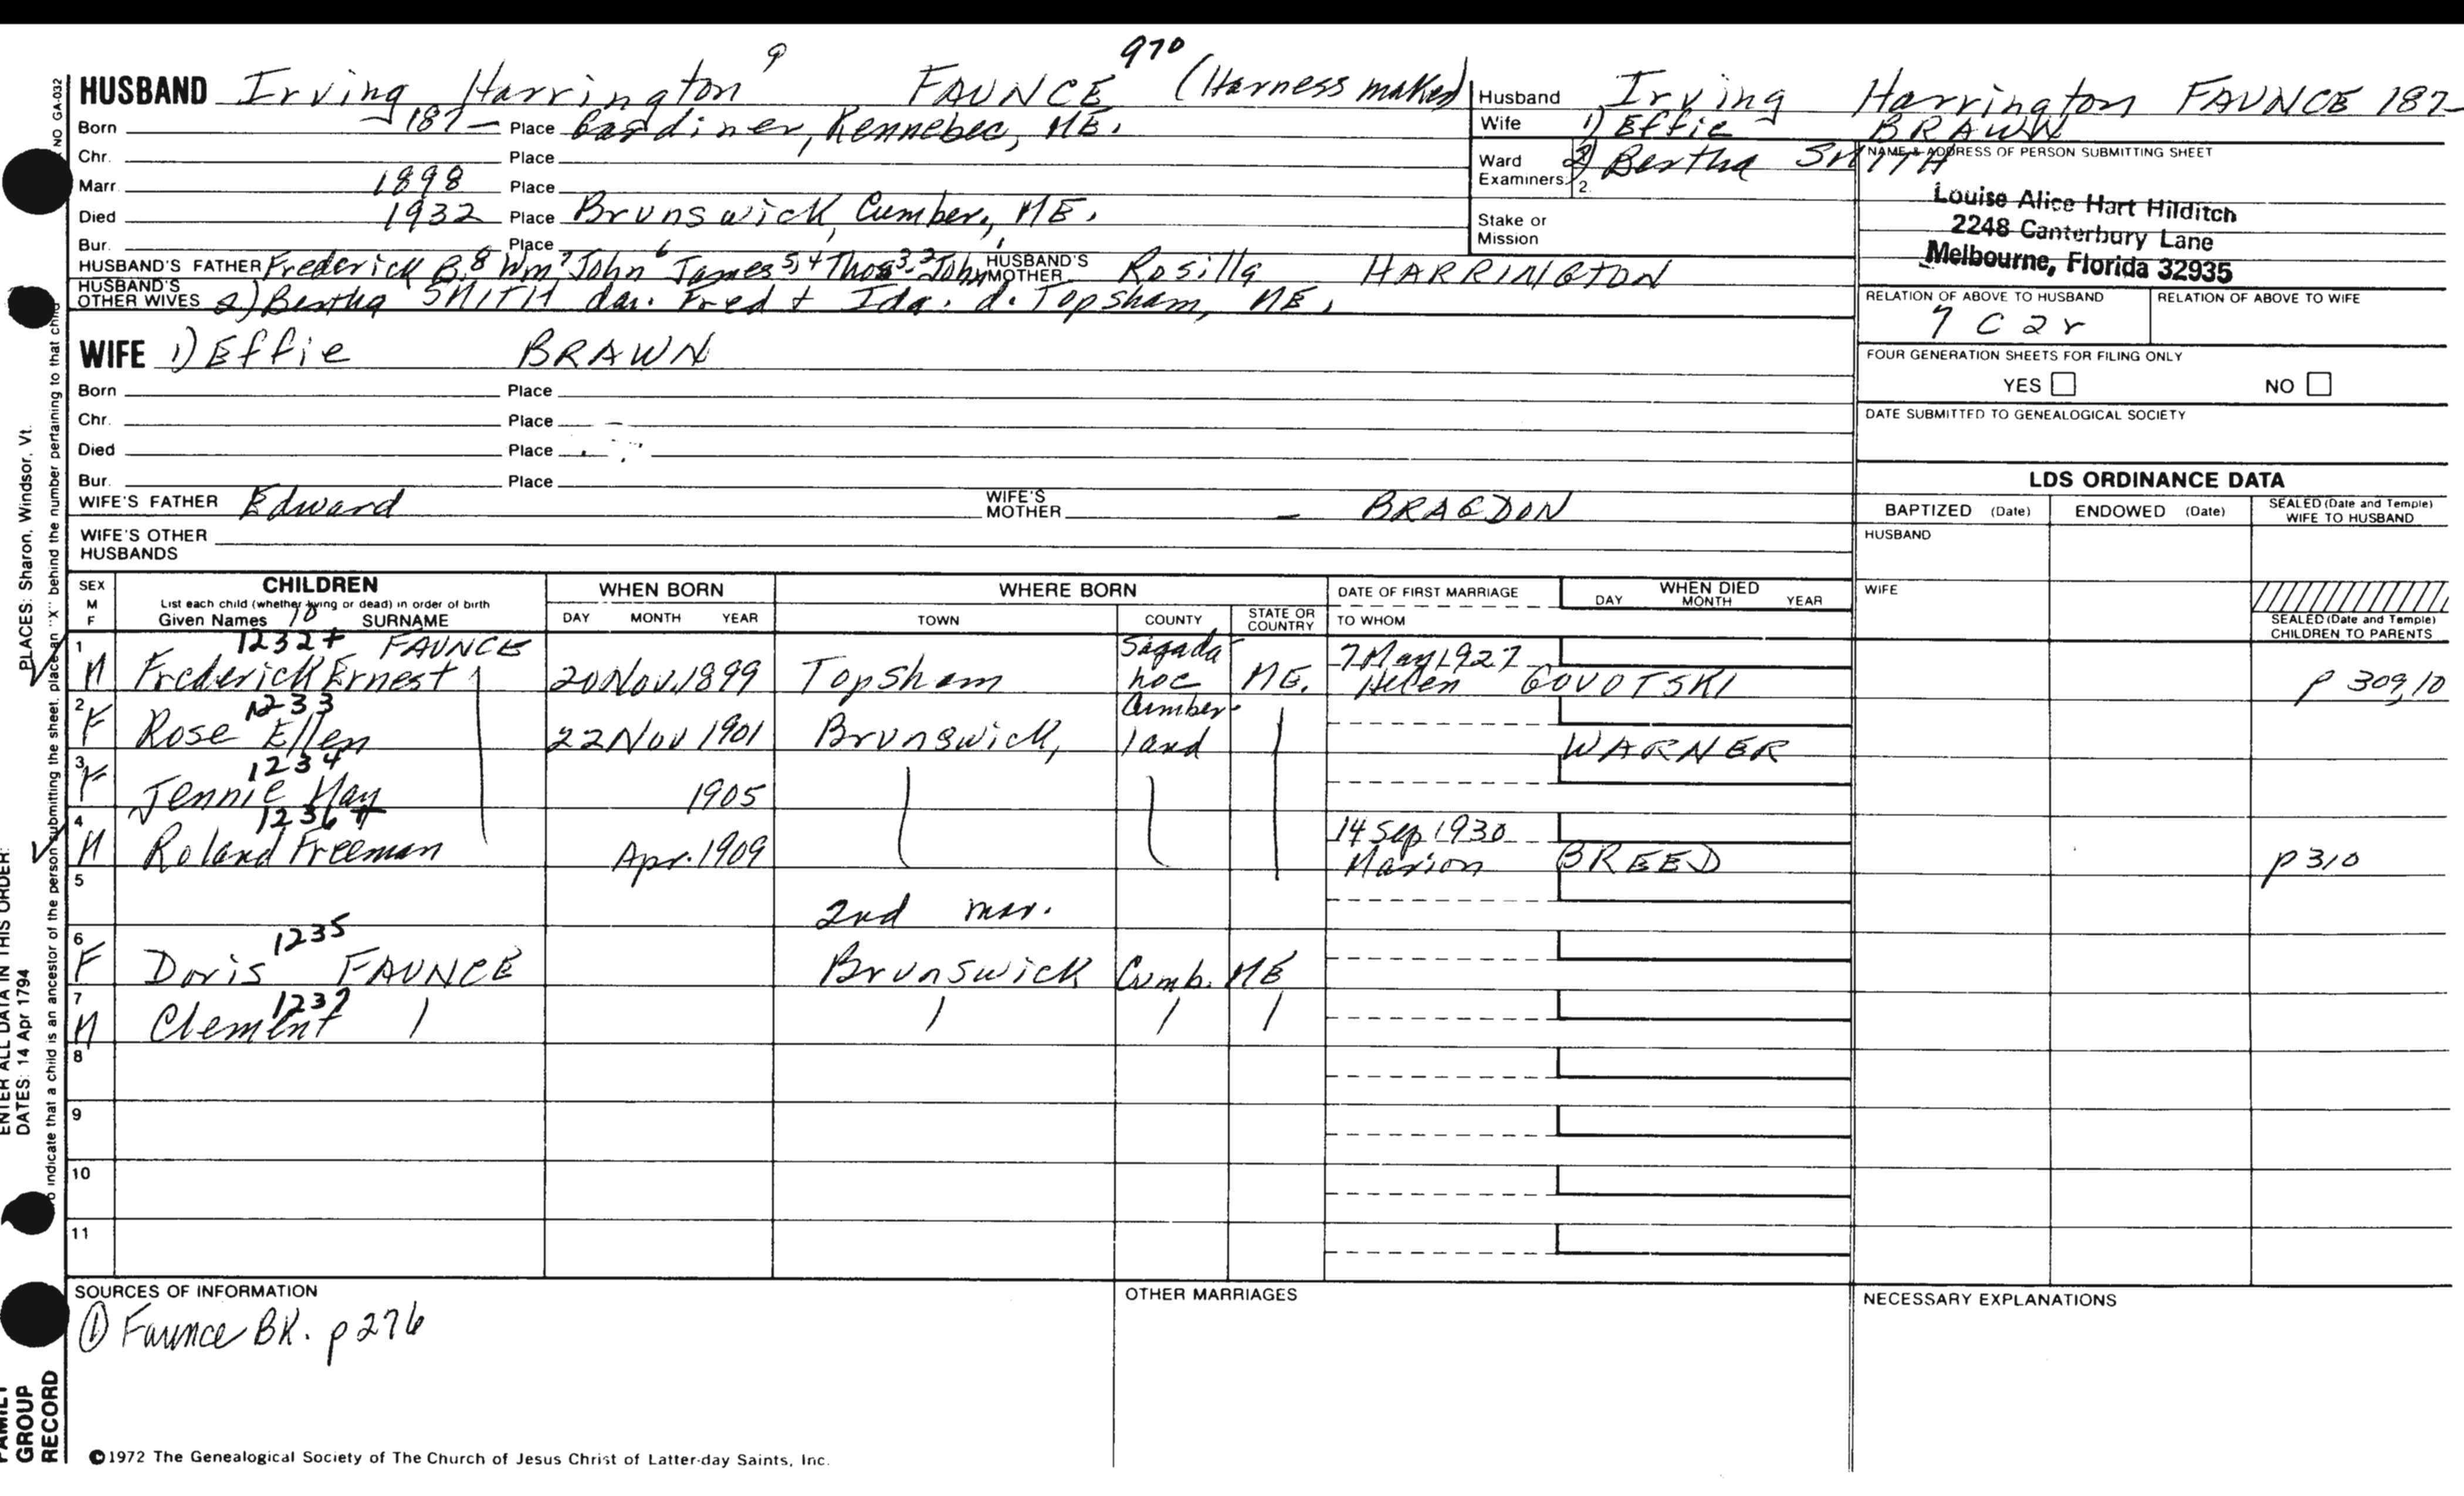 HUSBAND Irving Harrington 9 FAUNCE 970 (Harness maker)
Born 187- Place Gardiner, Kennebec, ME.
Chr. Place
Marr. 1898 Place
Died 1932 Place Brunswick, Cumber., ME.
Bur. Place
HUSBAND'S FATHER Frederick B.8 Wm7 John6 James5,4 Thos3,2 John1 HUSBAND'S MOTHER Rosilla HARRINGTON
HUSBAND'S OTHER WIVES 2) Bertha SMITH dau. Fred + Ida. d. Topsham, ME.
WIFE 1) Effie BRAWN
Born Place
Chr. Place
Died Place
Bur. Place
WIFE'S FATHER Edward WIFE'S MOTHER - BRAGDON
WIFE'S OTHER HUSBANDS
Husband Irving Harrington FAUNCE 187-
Wife 1) Effie BRAWN
2) Bertha SMITH
Ward
Examiners: 2.
Stake or
Mission
NAME & ADDRESS OF PERSON SUBMITTING SHEET
Louise Alice Hart Hilditch
2248 Canterbury Lane
Melbourne, Florida 32935
RELATION OF ABOVE TO HUSBAND RELATION OF ABOVE TO WIFE
7 C 2 r
FOUR GENERATION SHEETS FOR FILING ONLY
YES NO
DATE SUBMITTED TO GENEALOGICAL SOCIETY
LDS ORDINANCE DATA
BAPTIZED (Date) ENDOWED (Date) SEALED (Date and Temple) WIFE TO HUSBAND
HUSBAND
WIFE
SEALED (Date and Temple) CHILDREN TO PARENTS
SEX M F CHILDREN WHEN BORN WHERE BORN DATE OF FIRST MARRIAGE WHEN DIED
List each child (whether living or dead) in order of birth
Given Names 10 SURNAME DAY MONTH YEAR TOWN COUNTY STATE OR COUNTRY TO WHOM DAY MONTH YEAR
1 M 1232+ Frederick Ernest FAUNCE 20 Nov. 1899 Topsham Sagadahoc ME. 7 May 1927 Helen GOVOTSKI p 309,10
2 F 1233 Rose Ellen 22 Nov 1901 Brunswick, Cumberland WARNER
3 F 1234 Jennie May 1905
4 M 1236+ Roland Freeman Apr. 1909 14 Sep 1930 Marion BREED p 310
5 2nd mar.
6 F 1235 Doris FAUNCE Brunswick Cumb. ME
7 M 1237 Clement
8
9
10
11
SOURCES OF INFORMATION
① Faunce BK. p 276
OTHER MARRIAGES
NECESSARY EXPLANATIONS
©1972 The Genealogical Society of The Church of Jesus Christ of Latter-day Saints, Inc.
NO GA-032
o indicate that a child is an ancestor of the person submitting the sheet, place an "X" behind the number pertaining to that child
PLACES: Sharon, Windsor, Vt.
ENTER ALL DATA IN THIS ORDER:
DATES: 14 Apr 1794
FAMILY
GROUP
RECORD